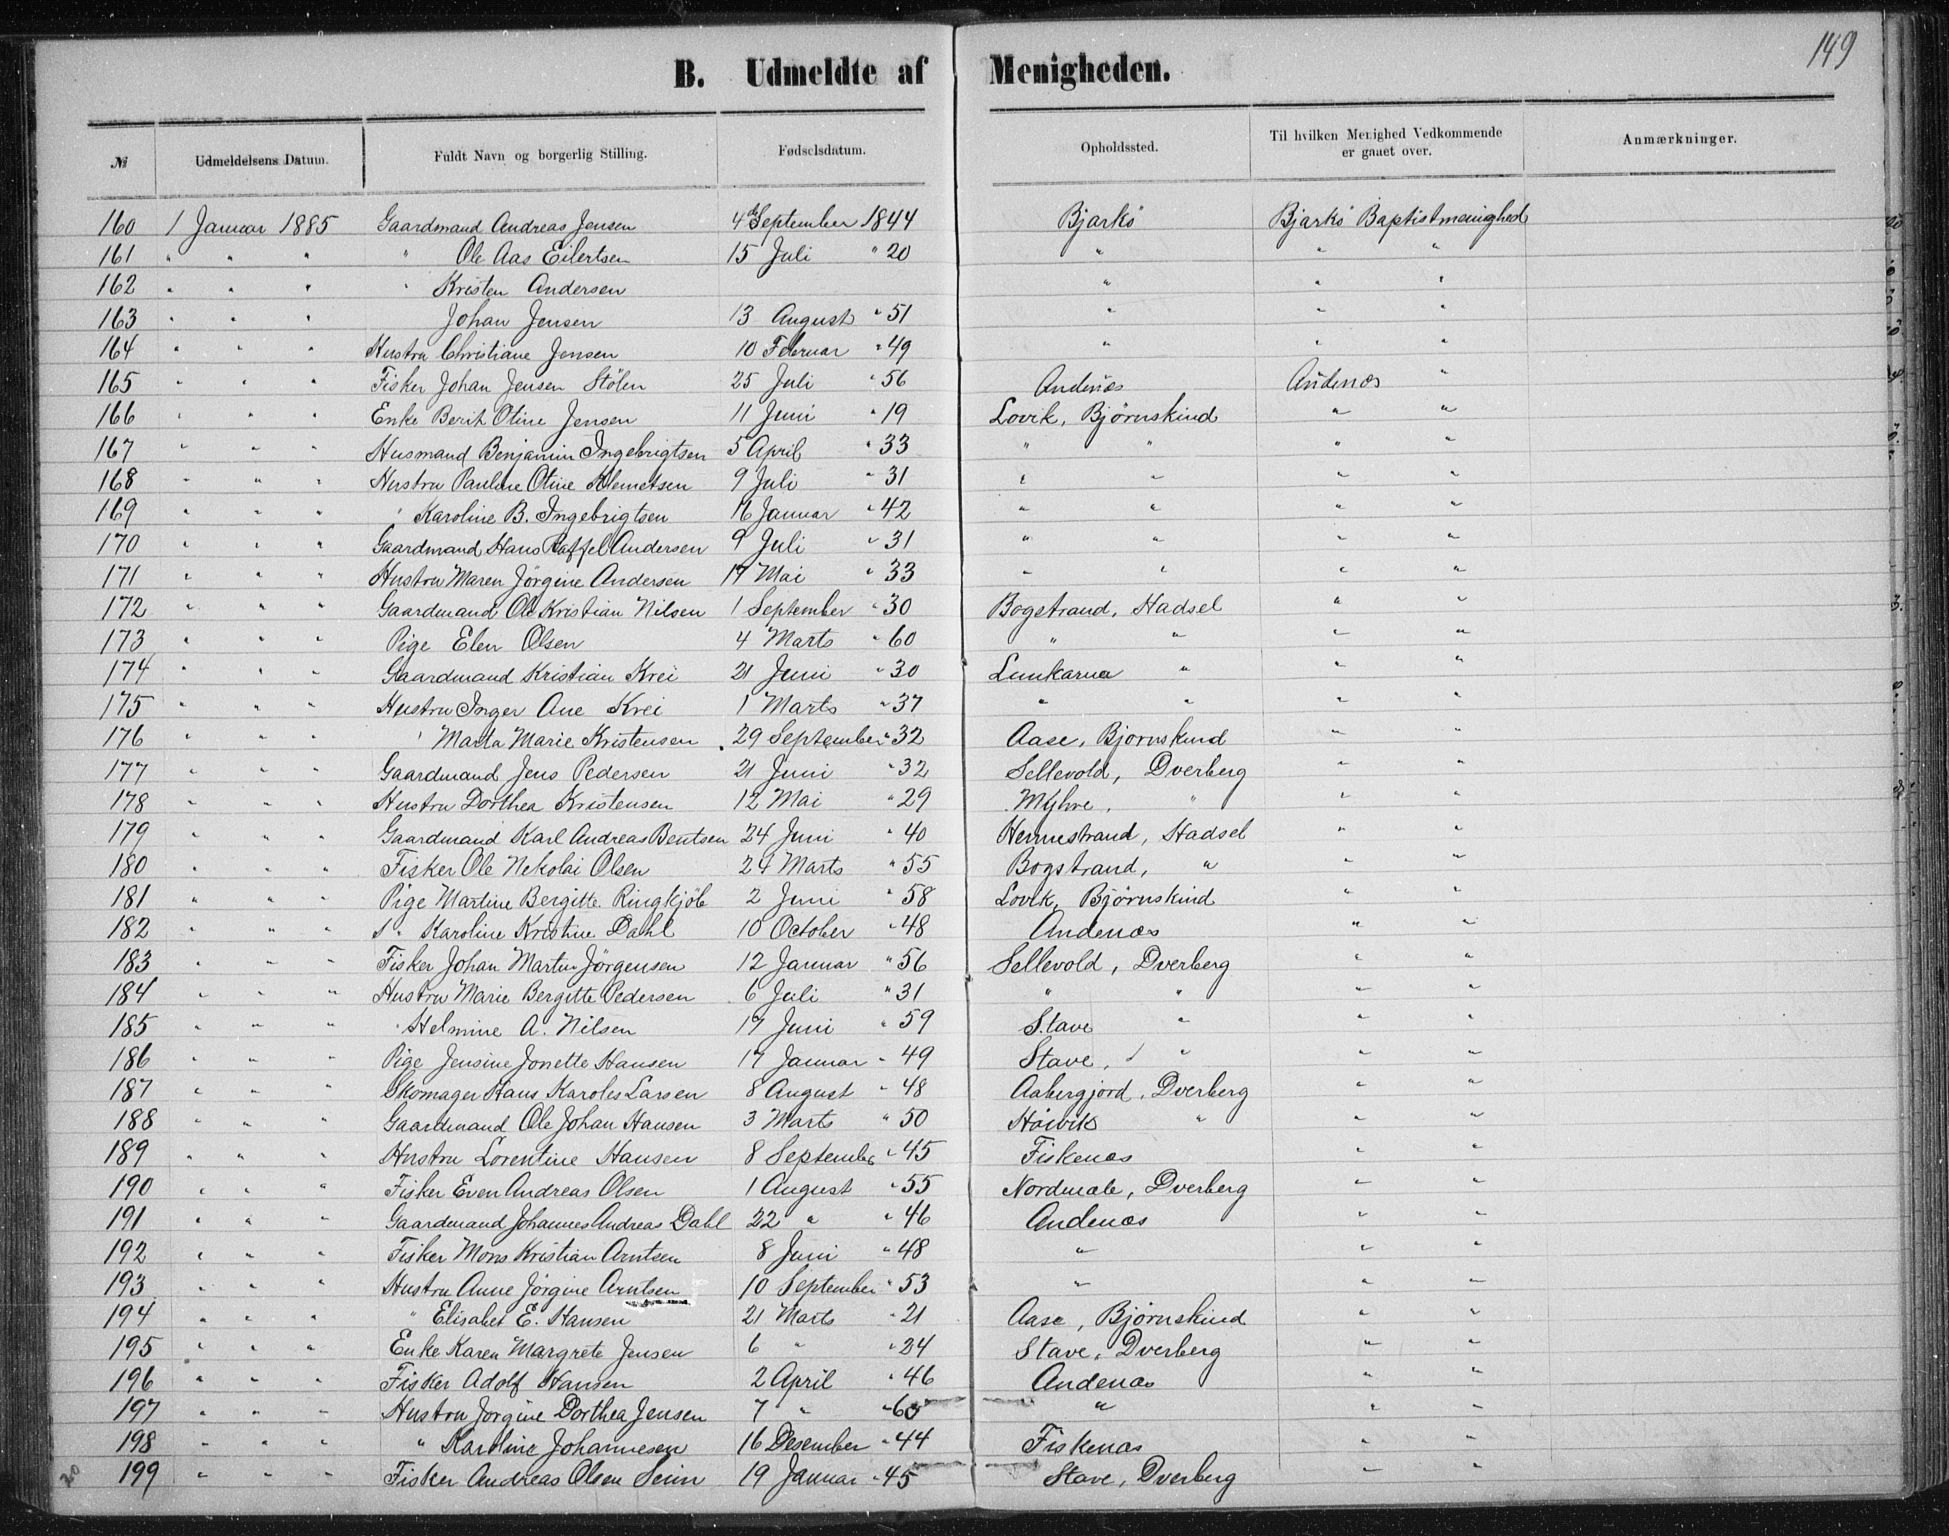 149
B. Udmeldte af Menigheden.
№ Udmeldelsens Datum. Fuldt Navn og borgerlig Stilling. Fødselsdatum. Opholdssted. Til hvilken Menighed Vedkommende er gaaet over. Anmærkninger.
160 1 Januar 1885 Gaardmand Andreas Jensen 4 September 1844 Bjarkö Bjarkö Baptistmenighed
161 " " " " Ole Aas Eilertsen 15 Juli " 20 " " "
162 " " " " Kristen Andersen " " "
163 " " " Johan Jensen 13 August " 51 " " "
164 " " " Hustru Christiane Jensen 10 Februar " 49 " " "
165 " " " Fisker Johan Jensen Stölen 25 Juli " 56 Andenæs Andenæs "
166 " " " Enke Berit Otine Jensen 11 Juni " 19 Lovik, Bjørnskind " "
167 " " " Husmand Benjamin Ingebrigtsen 5 April " 33 " " " "
168 " " " Hustru Pauline Otine Klemetsen 9 Juli " 31 " " " "
169 " " " " Karoline B. Ingebrigtsen 16 Januar " 42 " " " "
170 " " " Gaardmand Hans Raffel Andersen 9 Juli " 31 " " " "
171 " " " Hustru Maren Jörgine Andersen 17 Mai " 33 " " " "
172 " " " Gaardmand Ole Kristian Nilsen 1 September " 30 Bogstrand, Hadsel " "
173 " " " Pige Elen Olsen 4 Marts " 60 " " " "
174 " " " Gaardmand Kristian Krei 21 Juni " 30 Lunkarna " " "
175 " " " Hustru Inger Ane Krei 1 Marts " 37 " " " "
176 " " " " Marta Marie Kristensen 29 September " 32 Aase, Bjørnskind " "
177 " " " Gaardmand Jens Pedersen 21 Juni " 32 Sellevold, Dverberg " "
178 " " " Hustru Dorthea Kristensen 12 Mai " 29 Myhre, " " "
179 " " " Gaardmand Karl Andreas Bentsen 24 Juni " 40 Hennestrand, Hadsel " "
180 " " " Fisker Ole Nekolai Olsen 24 Marts " 55 Bogstrand, " " "
181 " " " Pige Martine Bergitte Ringkjöb 2 Juni " 58 Lovik, Björnskind " "
182 " " " " Karoline Kristine Dahl 10 October " 48 Andenæs " "
183 " " " Fisker Johan Martin Jörgensen 12 Januar " 56 Sellevold, Dverberg " "
184 " " " Hustru Marie Bergitte Pedersen 6 Juli " 31 " " " "
185 " " " " Helmine A. Nilsen 17 Juni " 59 Stave " " "
186 " " " Pige Jensine Jonette Hansen 17 Januar " 49 Stave, " " "
187 " " " Skomager Hans Karoles Larsen 8 August " 48 Aabergjord, Dverberg " "
188 " " " Gaardmand Ole Johan Hansen 3 Marts " 50 Höivik " " "
189 " " " Hustru Lorentine Hansen 8 September " 45 Fiskenæs " "
190 " " " Fisker Even Andreas Olsen 1 August " 55 Nordmæle, Dverberg " "
191 " " " Gaardmand Johannes Andreas Dahl 22 " " 46 Andenæs " "
192 " " " Fisker Mons Kristian Arntsen 8 Juni " 48 " " "
193 " " " Hustru Anne Jörgine Arntsen 10 September " 53 " " "
194 " " " " Elisabet E. Hansen 21 Marts " 21 Aase, Bjørnskind " "
195 " " " Enke Karen Margrete Jensen 6 " " 24 Stave, Dverberg " "
196 " " " Fisker Adolf Hansen 2 April " 46 Andenæs " "
197 " " " Hustru Jorgine Dorthea Jensen 7 " " 60 " " "
198 " " " " Karoline Johannesen 16 Desember " 44 Fiskenæs " "
199 " " " Fisker Andreas Olsen Seim 19 Januar " 45 Stave, Dverberg " "